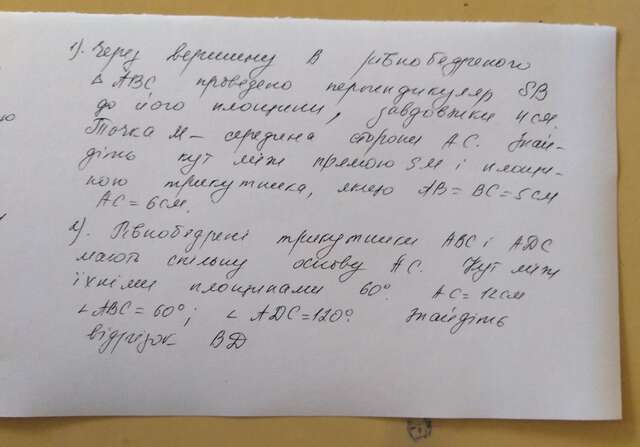 1). Через вершину В рівнобедреного
△ АВС проведено перпендикуляр SB
до його площини, завдовжки 4 см.
Точка М – середина сторони АС. Знай-
діть кут між прямою SM і площи-
ною трикутника, якщо АВ = ВС = 5 см
АС = 6 см.
2). Рівнобедрені трикутники АВС і АДС
мають спільну основу АС. Кут між
їхніми площинами 60°. АС = 12 см
∠ АВС = 60°; ∠ АДС = 120°. Знайдіть
відрізок ВД